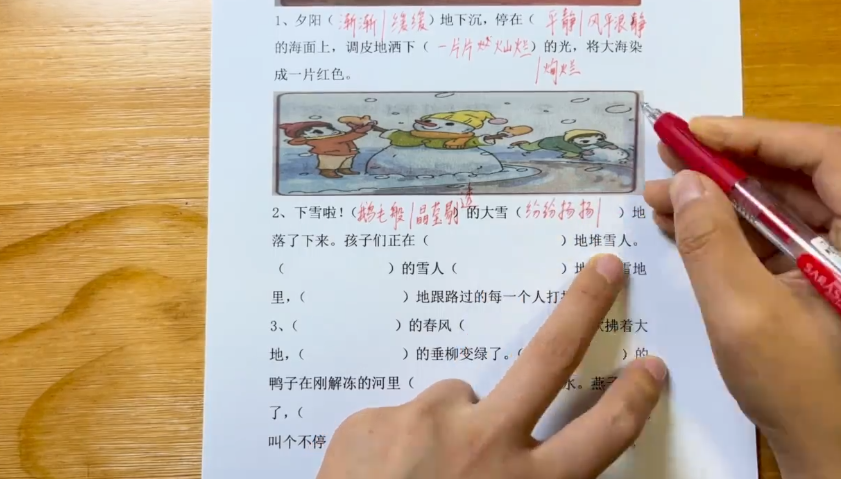 1、夕阳（渐渐|缓缓）地下沉，停在（平静|风平浪静
的海面上，调皮地洒下（一片片 灿烂）的光，将大海染
|灿烂
成一片红色。
2、下雪啦！（鹅毛般|晶莹剔透的大雪（纷纷扬扬|　）地
落了下来。孩子们正在（　　　）地堆雪人。
（　　　）的雪人（　　　）地 雪地
里，（　　　）地跟路过的每一个人打
3、（　　　）的春风（　　　 吹拂着大
地，（　　　）的垂柳变绿了。（　　　）的
鸭子在刚解冻的河里（　　　 水。燕子
了，（
叫个不停
SARASA